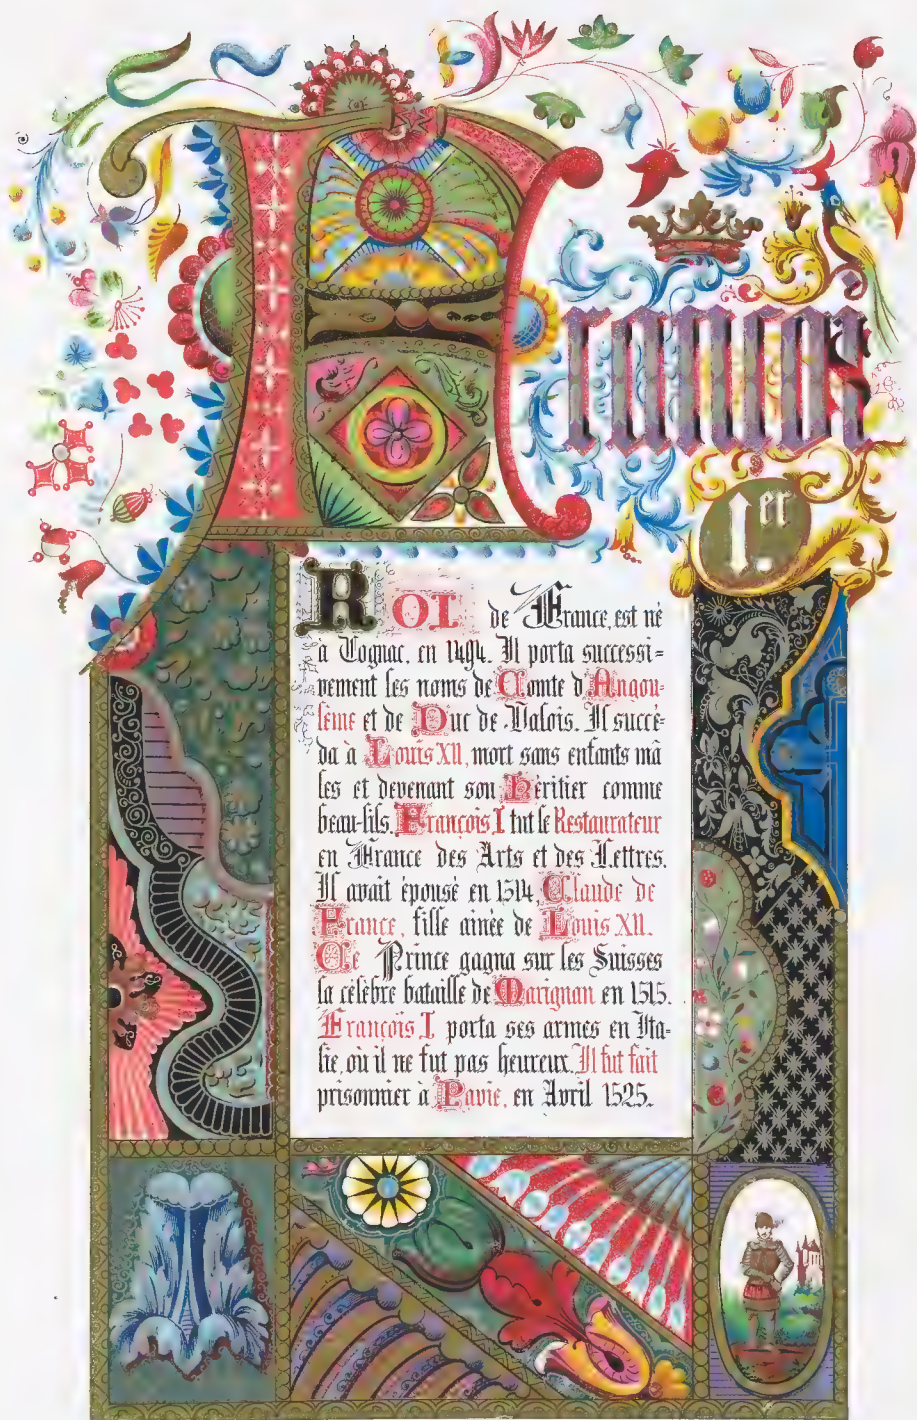 François
1.er
ROI de France, est né
à Cognac, en 1494. Il porta successi=
vement les noms de Comte d'Angou=
leme et de Duc de Valois. Il succé=
da à Louis XII, mort sans enfants mâ
les et devenant son Héritier comme
beau-fils. François I fut le Restaurateur
en France des Arts et des Lettres.
Il avait épousé en 1514, Claude de
France, fille ainée de Louis XII.
Ce Prince gagna sur les Suisses
la célèbre bataille de Marignan en 1515.
François I, porta ses armes en Ita-
lie, où il ne fut pas heureux. Il fut fait
prisonnier à Pavie, en Avril 1525.